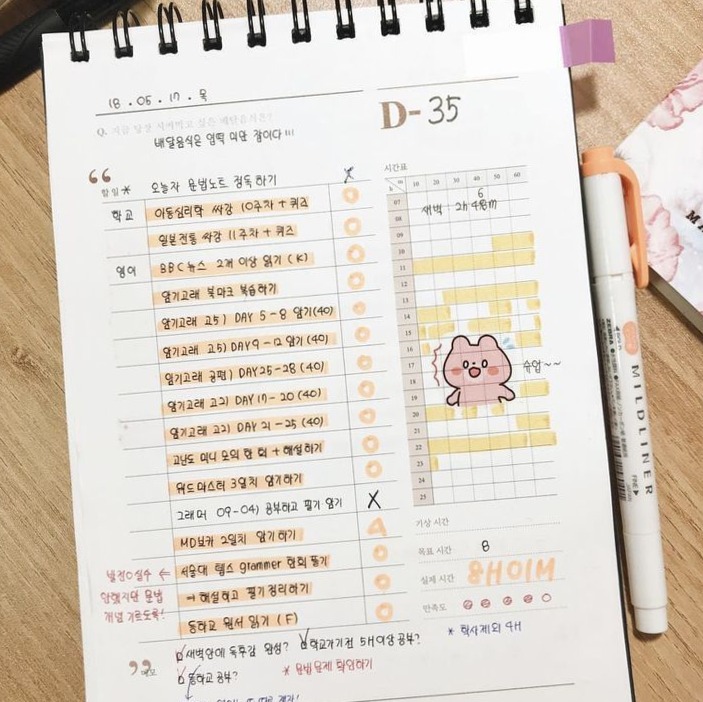 18 . 05 . 17 . 목
D-35
Q. 지금 당장 시켜먹고 싶은 배달음식은?
배달음식은 엽떡 이단 잠이다 !!!
“
할 일 * 오늘자 문법노트 정독하기 X
학교 아동심리학 싸강 10주차 + 퀴즈
일본전통 싸강 11주차 + 퀴즈
영어 BBC 뉴스 2개 이상 읽기 (K)
암기고래 북마크 복습하기
암기고래 고5) DAY 5-8 암기(40)
암기고래 고5) DAY9-12 암기(40)
암기고래 공편) DAY25-28 (40)
암기고래 고2) DAY 17-20 (40)
암기고래 고2) DAY 21-25 (40)
고난도 미니 모의 한 회 + 해설하기
워드마스터 3일치 암기하기
그래머 09-04) 공부하고 필기 암기 X
MD보카 2일치 암기하기
서울대 텝스 grammer 한회 풀기
→ 해설하고 필기 정리하기
동학교 원서 읽기 (F)
개념 기르도록!
”
메모
새벽안에 독후감 완성? 학교가기전 5H이상 공부? * 학사제외 4H
동학교 공부? * 문법문제 확인하기
시간표
h m 10 20 30 40 50 60
6
07 새벽 2h 48m
08
09
10
11
12
13
14
15
16
17 수업~~
18
19
20
21
22
23
24
25
기상 시간
목표 시간 8
실제 시간 8H01M
만족도
ZEBRA
MILDLINER
FINE